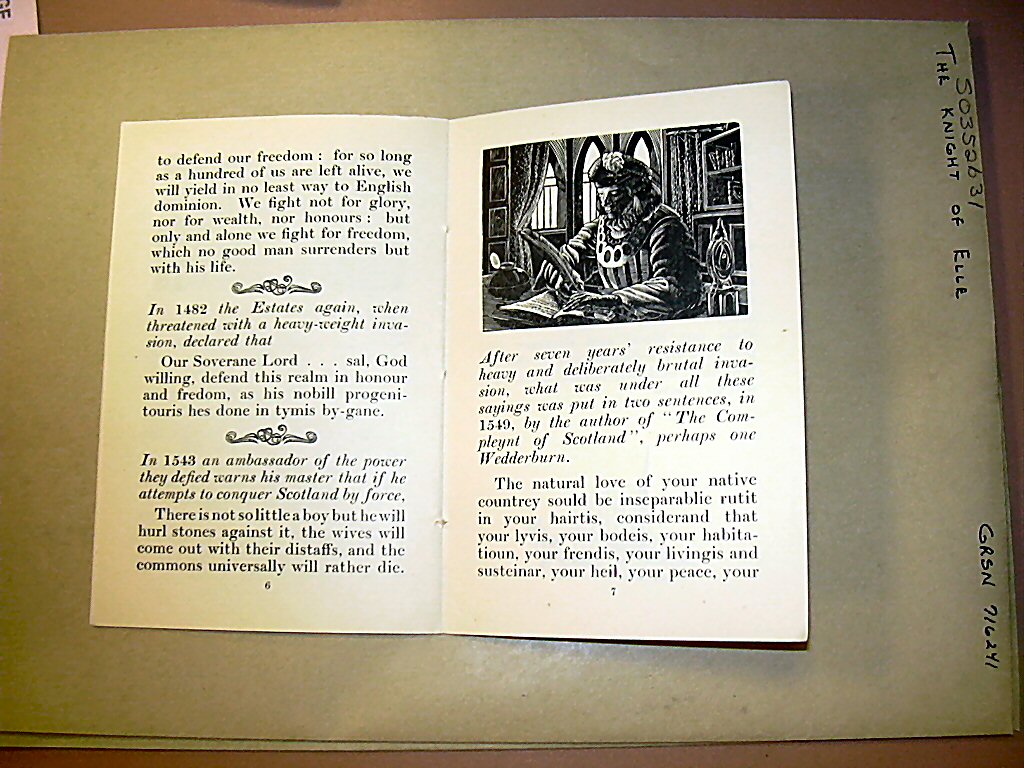 to defend our freedom : for so long
as a hundred of us are left alive, we
will yield in no least way to English
dominion. We fight not for glory,
nor for wealth, nor honours : but
only and alone we fight for freedom,
which no good man surrenders but
with his life.
In 1482 the Estates again, when
threatened with a heavy-weight inva-
sion, declared that
Our Soverane Lord . . . sal, God
willing, defend this realm in honour
and fredom, as his nobill progeni-
touris hes done in tymis by-gane.
In 1543 an ambassador of the power
they defied warns his master that if he
attempts to conquer Scotland by force,
There is not so little a boy but he will
hurl stones against it, the wives will
come out with their distaffs, and the
commons universally will rather die.
6
After seven years' resistance to
heavy and deliberately brutal inva-
sion, what was under all these
sayings was put in two sentences, in
1549, by the author of "The Com-
pleynt of Scotland", perhaps one
Wedderburn.
The natural love of your native
countrey sould be inseparablie rutit
in your hairtis, considerand that
your lyvis, your bodeis, your habita-
tioun, your frendis, your livingis and
susteinar, your heil, your peace, your
7
S0352631
THE KNIGHT OF ELLE
GRSN 716241